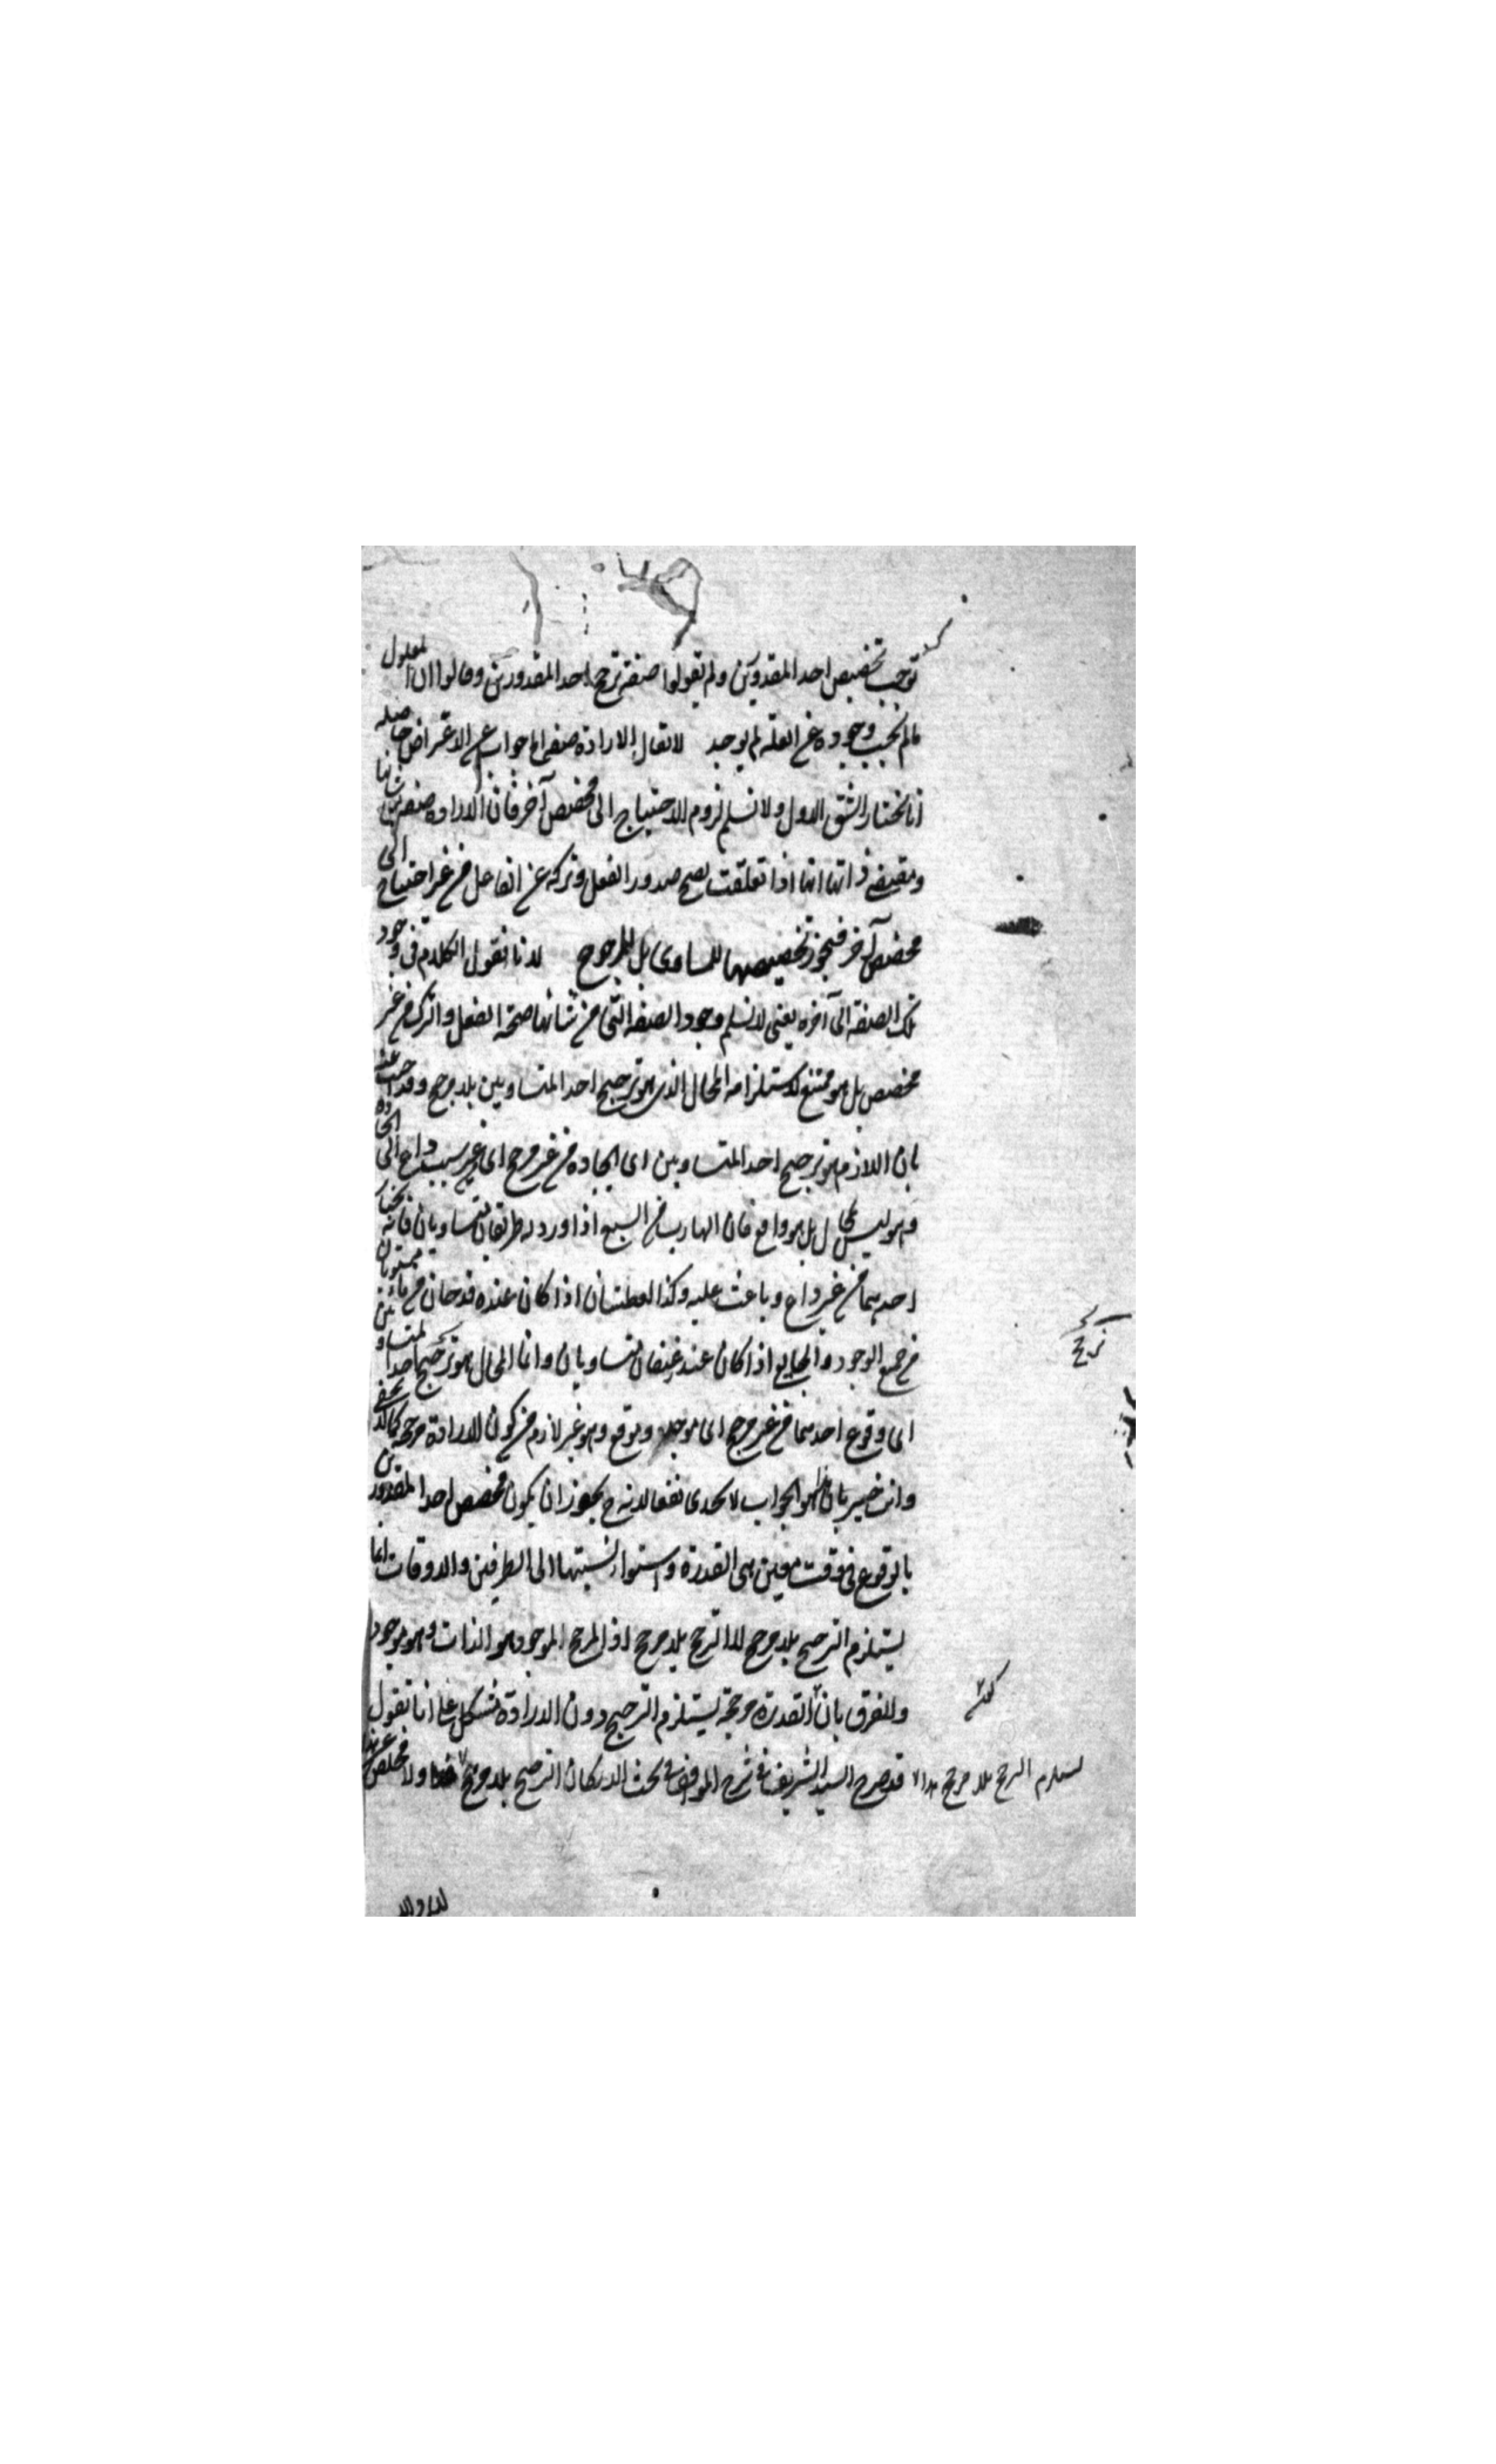 توجب تخصيص احد المقدورين ولم يقولوا صفة ترجح احد المقدورين وقالوا ان المعلول
مالم يجب وجوده عن العلة لم يوجد لا يقال الارادة صفة الجواب عن الاعتراض حاصله
انا نختار الشق الاول ولا نسلم لزوم الاحتياج الى مخصص آخر فان الارادة صفة من شانها
ومقتضى ذاتها انها اذا تعلقت يصح صدور الفعل وتركه عن الفاعل من غير احتياج الى
مخصص آخر فيجوز تخصيصها للمساوى بل للمرجوح لانا نقول الكلام فى وجود
تلك الصفة الى آخره يعنى لا نسلم وجود الصفة التى من شانها صحة الفعل والترك من غير
مخصص بل هو ممتنع لاستلزامه المحال الذى هو ترجيح احد المتساويين بلا مرجح وقد اجيب عنه
بان اللازم هو ترجيح احد المتساويين اى ايجاده من غير مرجح اى من غير سبب داع الى ايجاده
وهو ليس بمحال بل هو واقع فان الهارب من السبع اذا ورد له طريقان متساويان فانه يختار
احدهما من غير داع وباعث عليه وكذا العطشان اذا كان عنده قدحان من ماء مستويان
من جميع الوجوه والجايع اذا كان عنده رغيفان متساويان وانما المحال هو ترجح احد المتساويين
اى وقوع احدهما من غير مرجح اى موجد وموقع وهو غير لازم من كون الارادة مرجحة كما لا يخفى
وانت خبير بان هذا الجواب لا يجدى نفعا لانه ح يجوز ان يكون مخصص احد المقدورين
بالوقوع فى وقت معين هى القدرة واستواء نسبتها الى الطرفين والاوقات انما
يستلزم الترجيح بلا مرجح لا الترجح بلا مرجح اذ المرجح الموجد هو الذات وهو موجود
والفرق بان القدرة مرجحة يستلزم الترجيح دون الارادة مشكل على انا نقول
قد صرح السيد الشريف فى شرح المواقف فى بحث الامكان الترجيح بلا مرجح ولا مخلص عن هذا
يستلزم الترجح بلا مرجح
ترجح